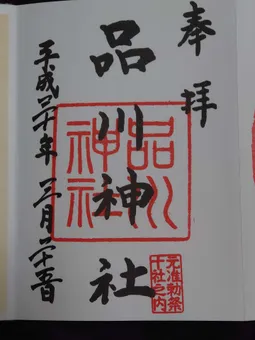 奉拝
品川神社
品川神社
元准勅祭
十社之内
平成二十年三月二十五日